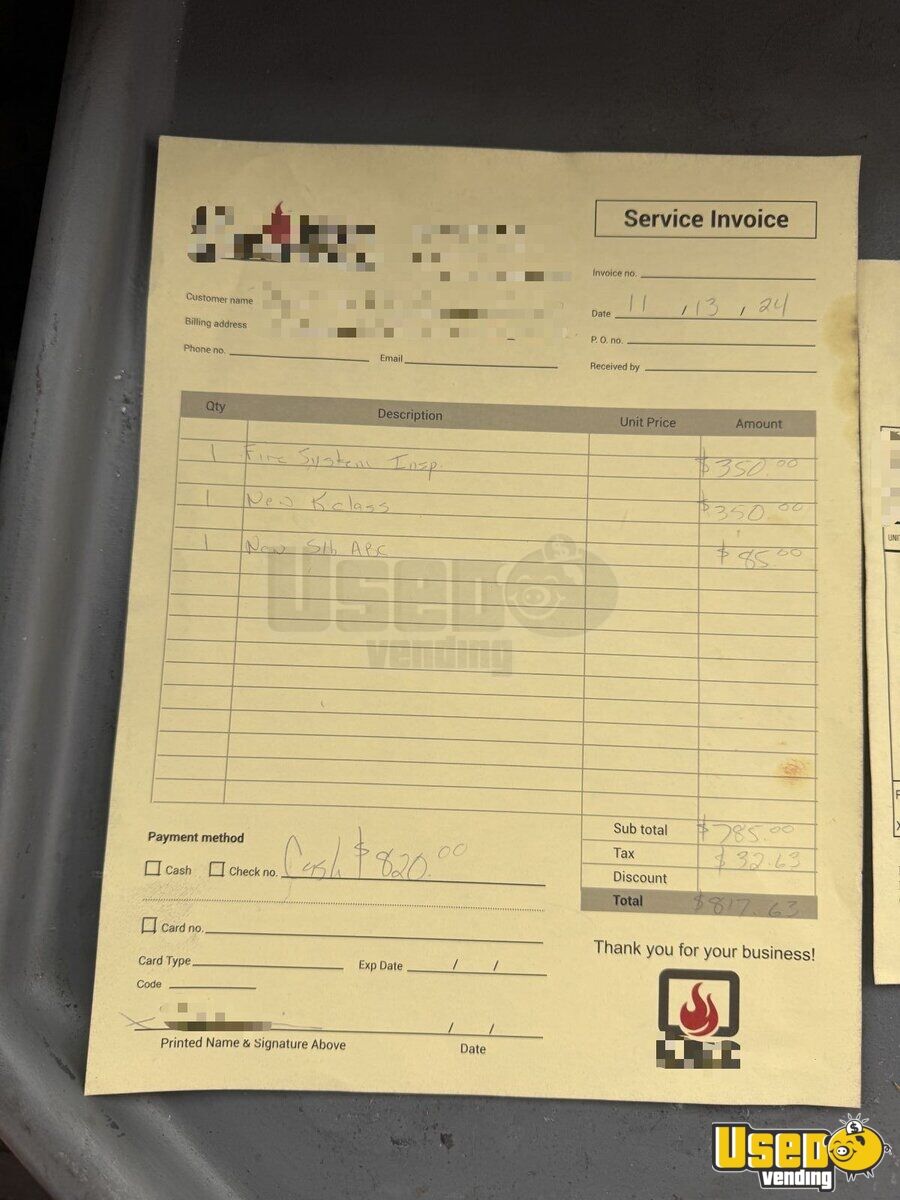 Service Invoice
Invoice no.
Date 11 , 13 , 24
P. O. no.
Received by
Customer name
Billing address
Phone no. Email
Qty Description Unit Price Amount
1 Fire System Insp. $350.00
1 New K class $350.00
1 New 5lb ABC $85.00
Used vending
Sub total $785.00
Tax $32.63
Discount
Total $817.63
Payment method
Cash Check no. Cash $820.00
Card no.
Card Type Exp Date / /
Code
X / /
Printed Name & Signature Above Date
Thank you for your business!
UNI
Used vending